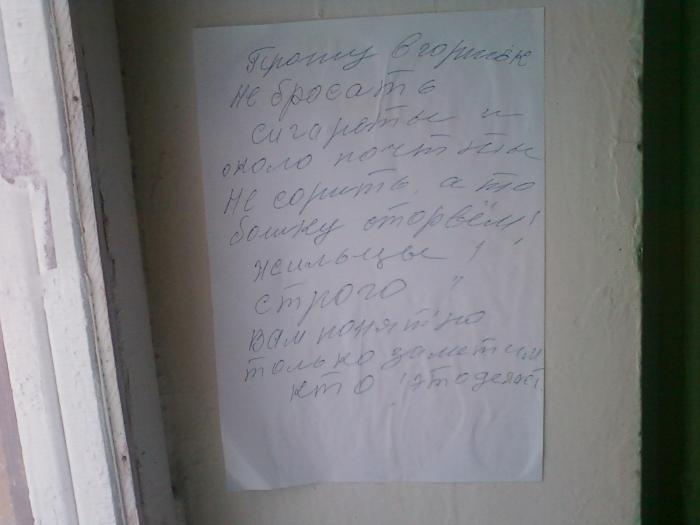 Прошу в горшок
не бросать
сигареты и
около почты
не сорить, а то
башку оторвём!
жильцы !!
строго "
вам понятно
только заметим
кто !это делает